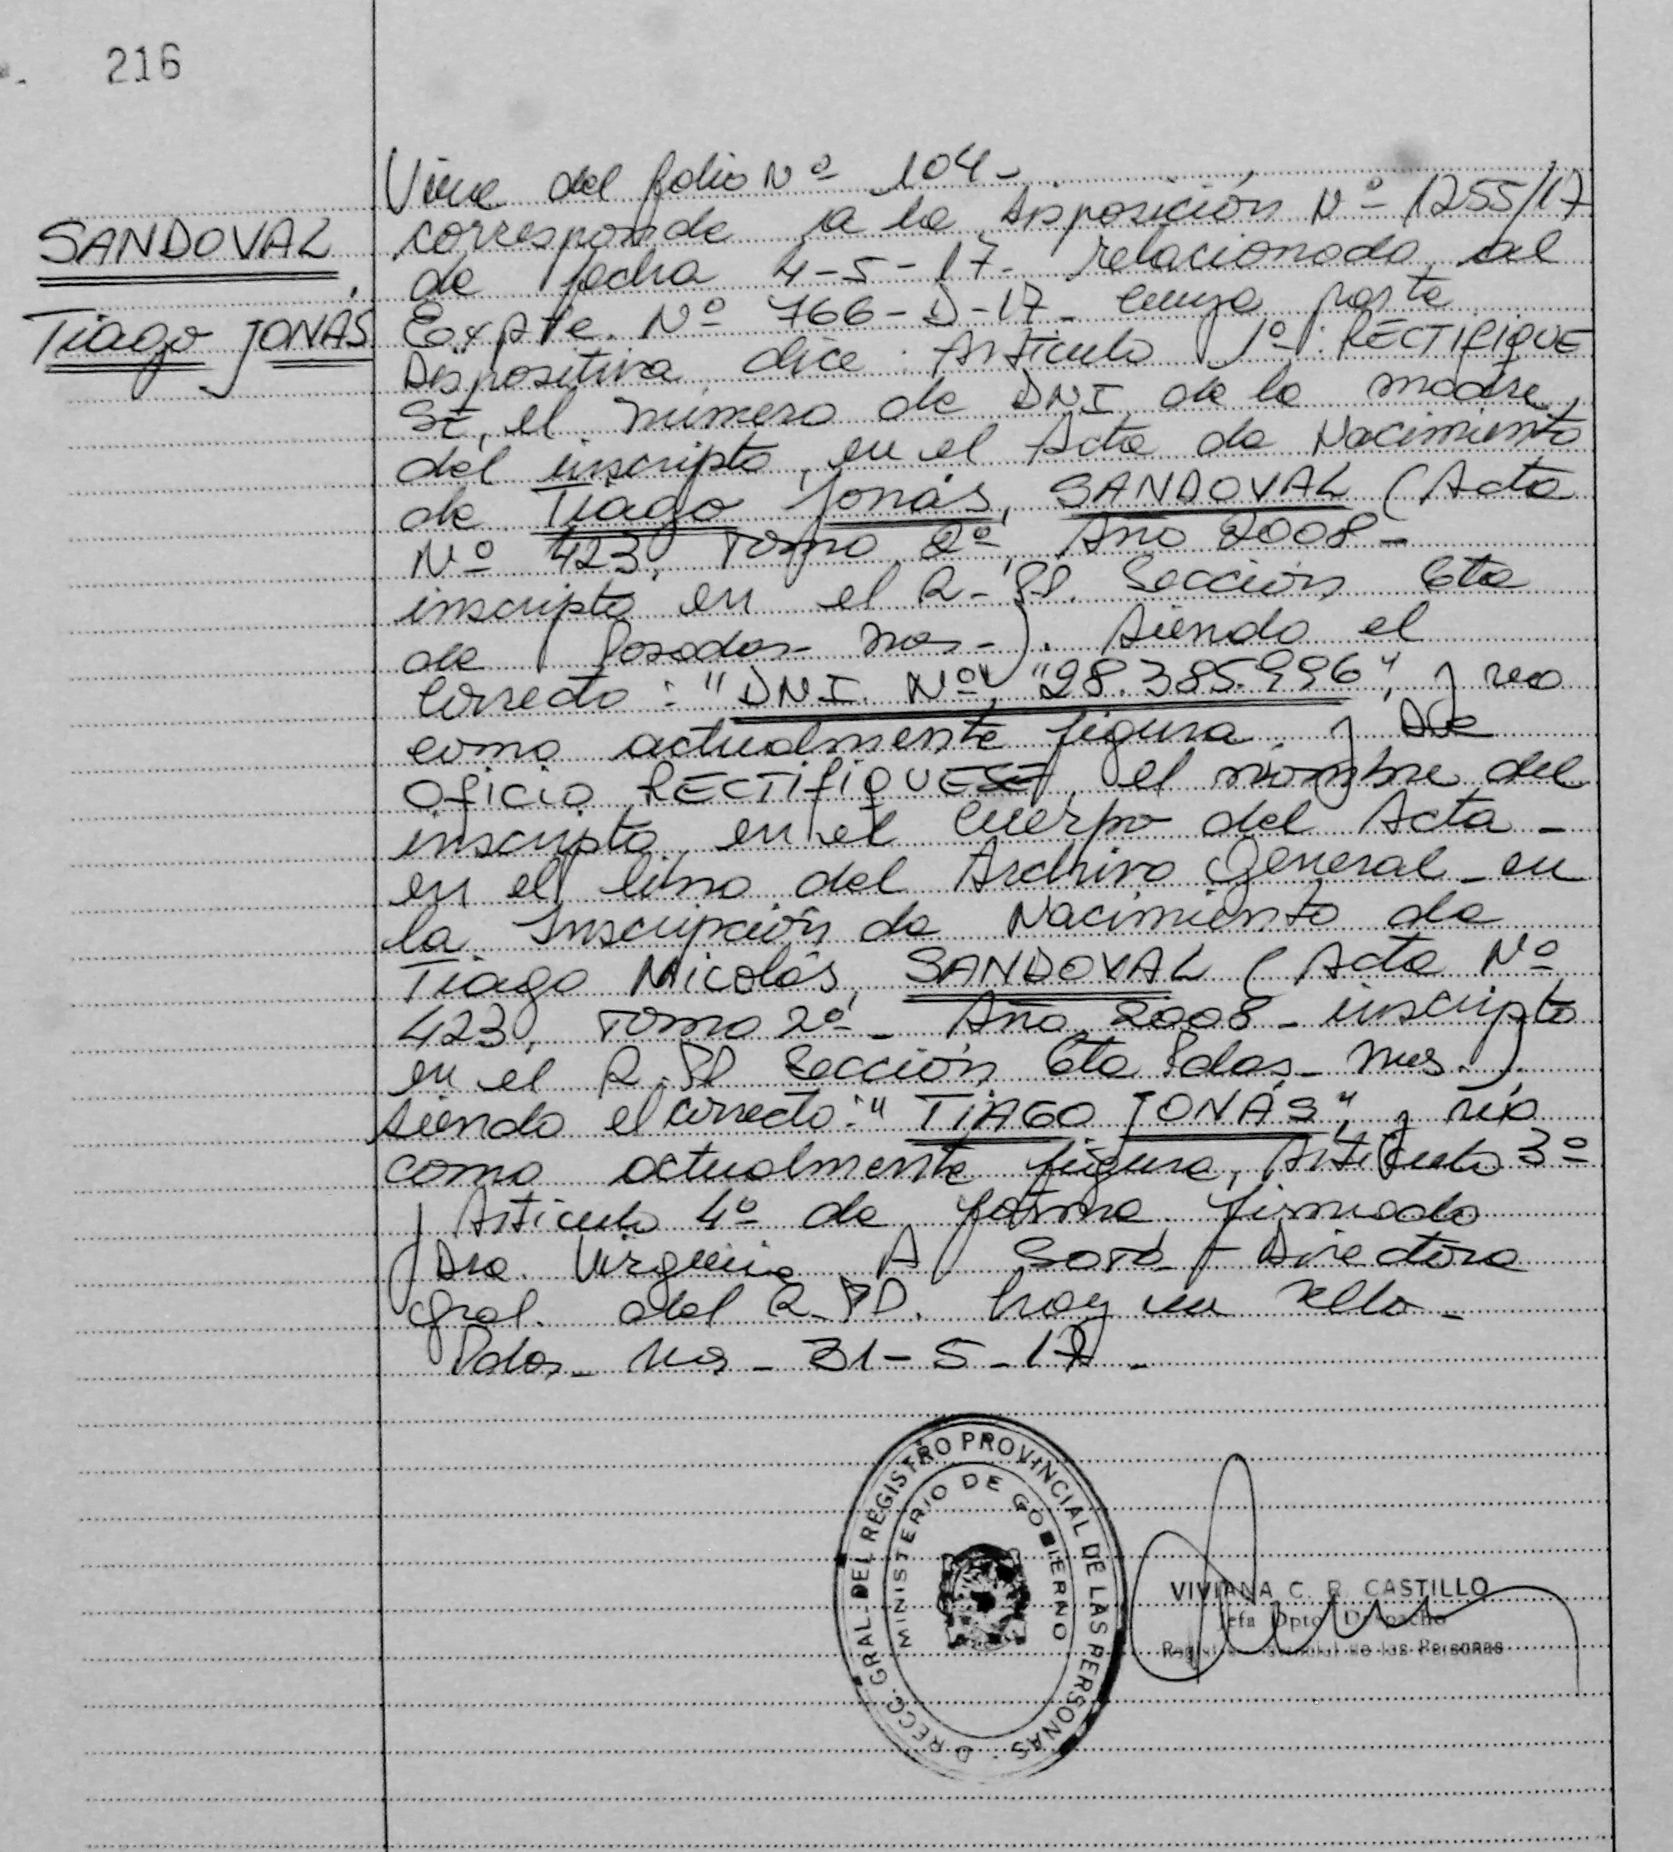 216
SANDOVAL,
Tiago JONÁS
Viene del folio Nº 104-
corresponde a la Disposición Nº 1255/17
de fecha 4-5-17- relacionado al
Expte. Nº 766-D-17- cuya parte
Dispositiva dice: Artículo 1º: RECTIFIQUE
SE, el número de DNI de la madre,
del inscripto, en el Acta de Nacimiento
de Tiago Jonás, SANDOVAL (Acta
Nº 423, Tomo 2º, Año 2008-
inscripto en el R-PP. Sección 6ta
de Posadas- Mnes-). siendo el
correcto: "DNI. Nº "28.385.996", y no
como actualmente figura. y De
Oficio RECTIFIQUESE, el nombre del
inscripto en el cuerpo del Acta-
en el libro del Archivo General- en
la Inscripción de Nacimiento de
Tiago Nicolás, SANDOVAL (Acta Nº
423, Tomo 2º- Año 2008- inscripto
en el R.PP Sección 6ta Pdas- Mnes.).
siendo el correcto: "TIAGO JONÁS", y no
como actualmente figura, Artículo 3º
y Artículo 4º de forma. firmado
Dra. Virginia A Soto- Directora
Gral. del R.PP. hay un sello-
Pdas- Mns- 31-5-17-
DIRECC. GRAL. DEL REGISTRO PROVINCIAL DE LAS PERSONAS
MINISTERIO DE GOBIERNO
VIVIANA C. R. CASTILLO
Jefa Dpto. Despacho
de las Personas